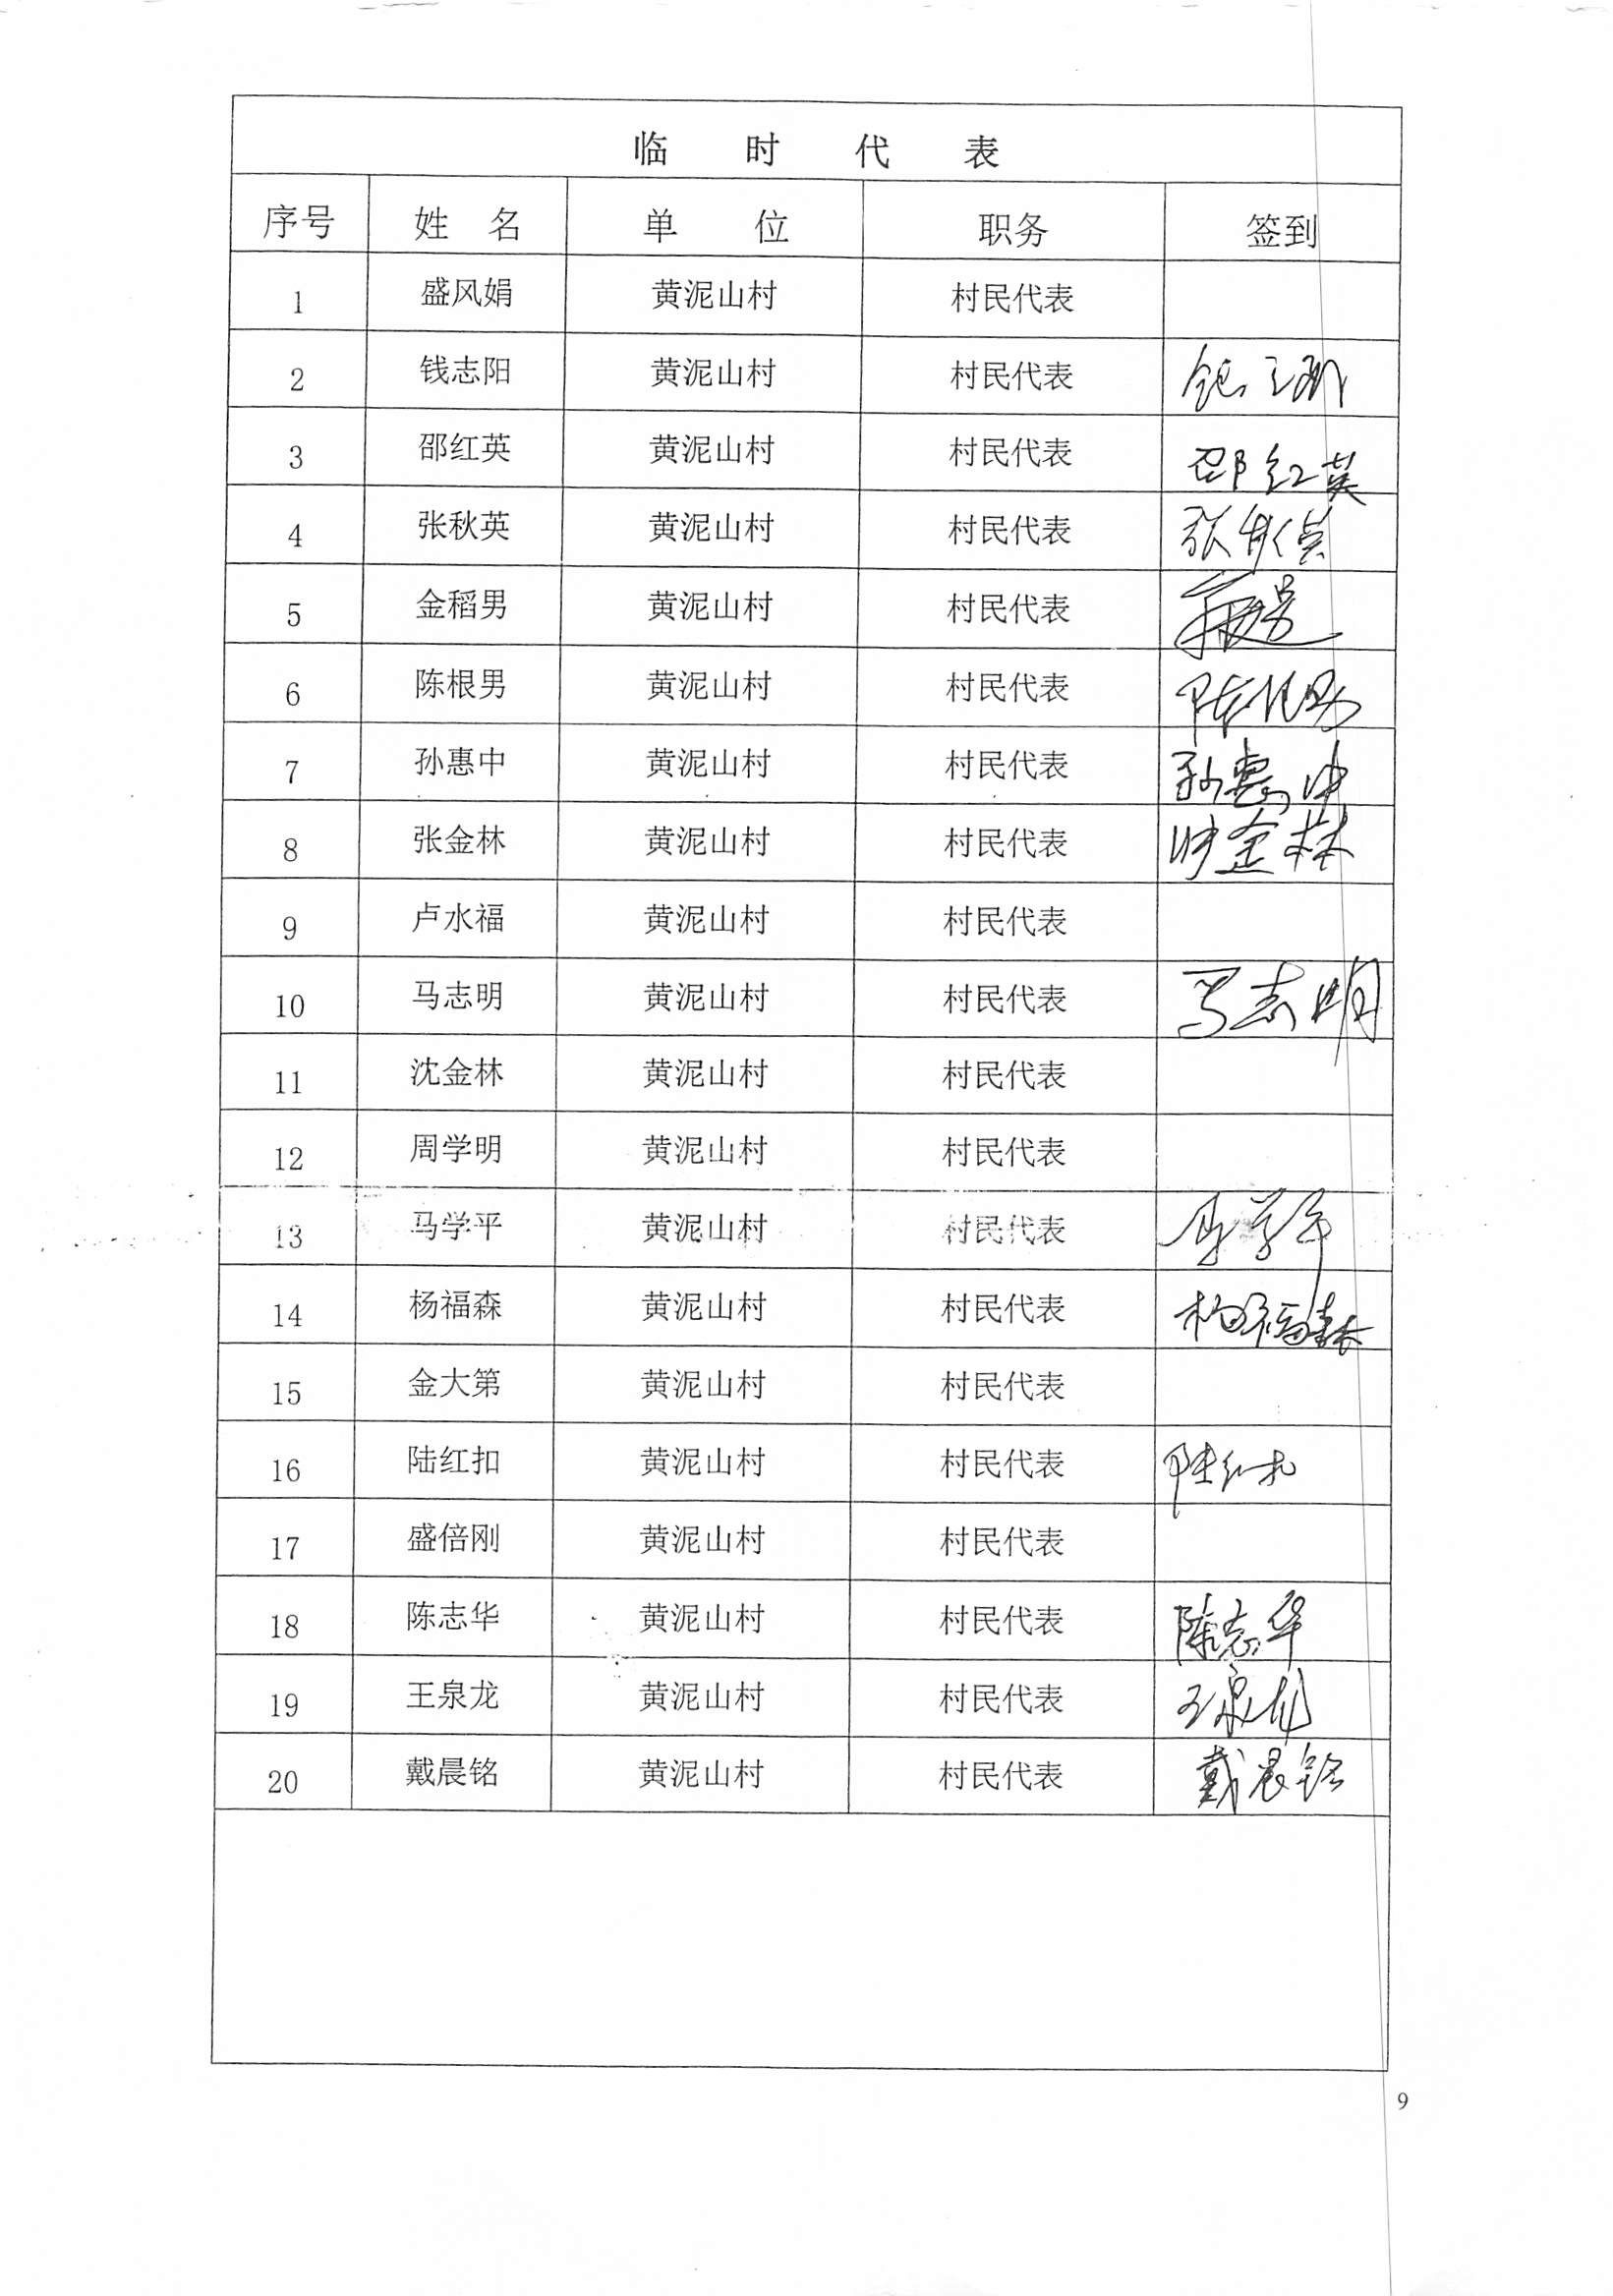 临 时 代 表
序号 姓 名 单 位 职务 签到
1 盛风娟 黄泥山村 村民代表
2 钱志阳 黄泥山村 村民代表
3 邵红英 黄泥山村 村民代表 邵红英
4 张秋英 黄泥山村 村民代表 张秋英
5 金稻男 黄泥山村 村民代表
6 陈根男 黄泥山村 村民代表 陈根男
7 孙惠中 黄泥山村 村民代表 孙惠中
8 张金林 黄泥山村 村民代表 张金林
9 卢水福 黄泥山村 村民代表
10 马志明 黄泥山村 村民代表 马志明
11 沈金林 黄泥山村 村民代表
12 周学明 黄泥山村 村民代表
13 马学平 黄泥山村 村民代表 马学平
14 杨福森 黄泥山村 村民代表 杨福森
15 金大第 黄泥山村 村民代表
16 陆红扣 黄泥山村 村民代表 陆红扣
17 盛倍刚 黄泥山村 村民代表
18 陈志华 黄泥山村 村民代表 陈志华
19 王泉龙 黄泥山村 村民代表 王泉龙
20 戴晨铭 黄泥山村 村民代表 戴晨铭
9